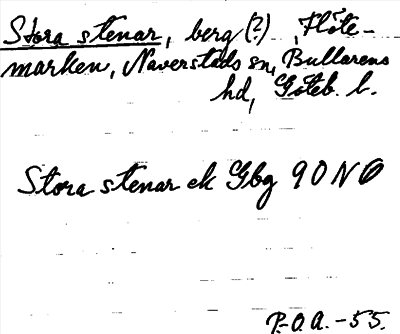 Stora stenar, berg (?) Flöte-
marken, Naverstads sn, Bullarens
hd, Göteb. l.
Stora stenar ek Gbg 90 NO
P.-O.A. -55.